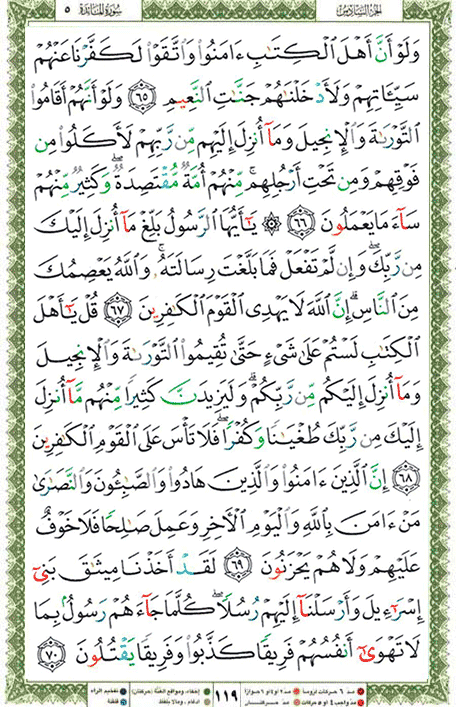 الجزء السادس سورة المائدة ٥
وَلَوْ أَنَّ أَهْلَ ٱلْكِتَٰبِ ءَامَنُوا۟ وَٱتَّقَوْا۟ لَكَفَّرْنَا عَنْهُمْ
سَيِّـَٔاتِهِمْ وَلَأَدْخَلْنَٰهُمْ جَنَّٰتِ ٱلنَّعِيمِ ٦٥ وَلَوْ أَنَّهُمْ أَقَامُوا۟
ٱلتَّوْرَىٰةَ وَٱلْإِنجِيلَ وَمَآ أُنزِلَ إِلَيْهِم مِّن رَّبِّهِمْ لَأَكَلُوا۟ مِن
فَوْقِهِمْ وَمِن تَحْتِ أَرْجُلِهِم ۚ مِّنْهُمْ أُمَّةٌ مُّقْتَصِدَةٌ ۖ وَكَثِيرٌ مِّنْهُمْ
سَآءَ مَا يَعْمَلُونَ ٦٦ ۞ يَٰٓأَيُّهَا ٱلرَّسُولُ بَلِّغْ مَآ أُنزِلَ إِلَيْكَ
مِن رَّبِّكَ ۖ وَإِن لَّمْ تَفْعَلْ فَمَا بَلَّغْتَ رِسَالَتَهُۥ ۚ وَٱللَّهُ يَعْصِمُكَ
مِنَ ٱلنَّاسِ ۗ إِنَّ ٱللَّهَ لَا يَهْدِى ٱلْقَوْمَ ٱلْكَٰفِرِينَ ٦٧ قُلْ يَٰٓأَهْلَ
ٱلْكِتَٰبِ لَسْتُمْ عَلَىٰ شَىْءٍ حَتَّىٰ تُقِيمُوا۟ ٱلتَّوْرَىٰةَ وَٱلْإِنجِيلَ
وَمَآ أُنزِلَ إِلَيْكُم مِّن رَّبِّكُمْ ۗ وَلَيَزِيدَنَّ كَثِيرًا مِّنْهُم مَّآ أُنزِلَ
إِلَيْكَ مِن رَّبِّكَ طُغْيَٰنًا وَكُفْرًا ۖ فَلَا تَأْسَ عَلَى ٱلْقَوْمِ ٱلْكَٰفِرِينَ
٦٨ إِنَّ ٱلَّذِينَ ءَامَنُوا۟ وَٱلَّذِينَ هَادُوا۟ وَٱلصَّٰبِـُٔونَ وَٱلنَّصَٰرَىٰ
مَنْ ءَامَنَ بِٱللَّهِ وَٱلْيَوْمِ ٱلْءَاخِرِ وَعَمِلَ صَٰلِحًا فَلَا خَوْفٌ
عَلَيْهِمْ وَلَا هُمْ يَحْزَنُونَ ٦٩ لَقَدْ أَخَذْنَا مِيثَٰقَ بَنِىٓ
إِسْرَٰٓءِيلَ وَأَرْسَلْنَآ إِلَيْهِمْ رُسُلًا ۖ كُلَّمَا جَآءَهُمْ رَسُولٌۢ بِمَا
لَا تَهْوَىٰٓ أَنفُسُهُمْ فَرِيقًا كَذَّبُوا۟ وَفَرِيقًا يَقْتُلُونَ ٧٠
مد ٦ حركات لزوماً مد ٢ او ٤ او ٦ جوازاً ١١٩ إخفاء، ومواقع الغنة (حركتان) تفخيم الراء
مد واجب ٤ او ٥ حركات مد حركتان إدغام، وما لا يلفظ قلقلة